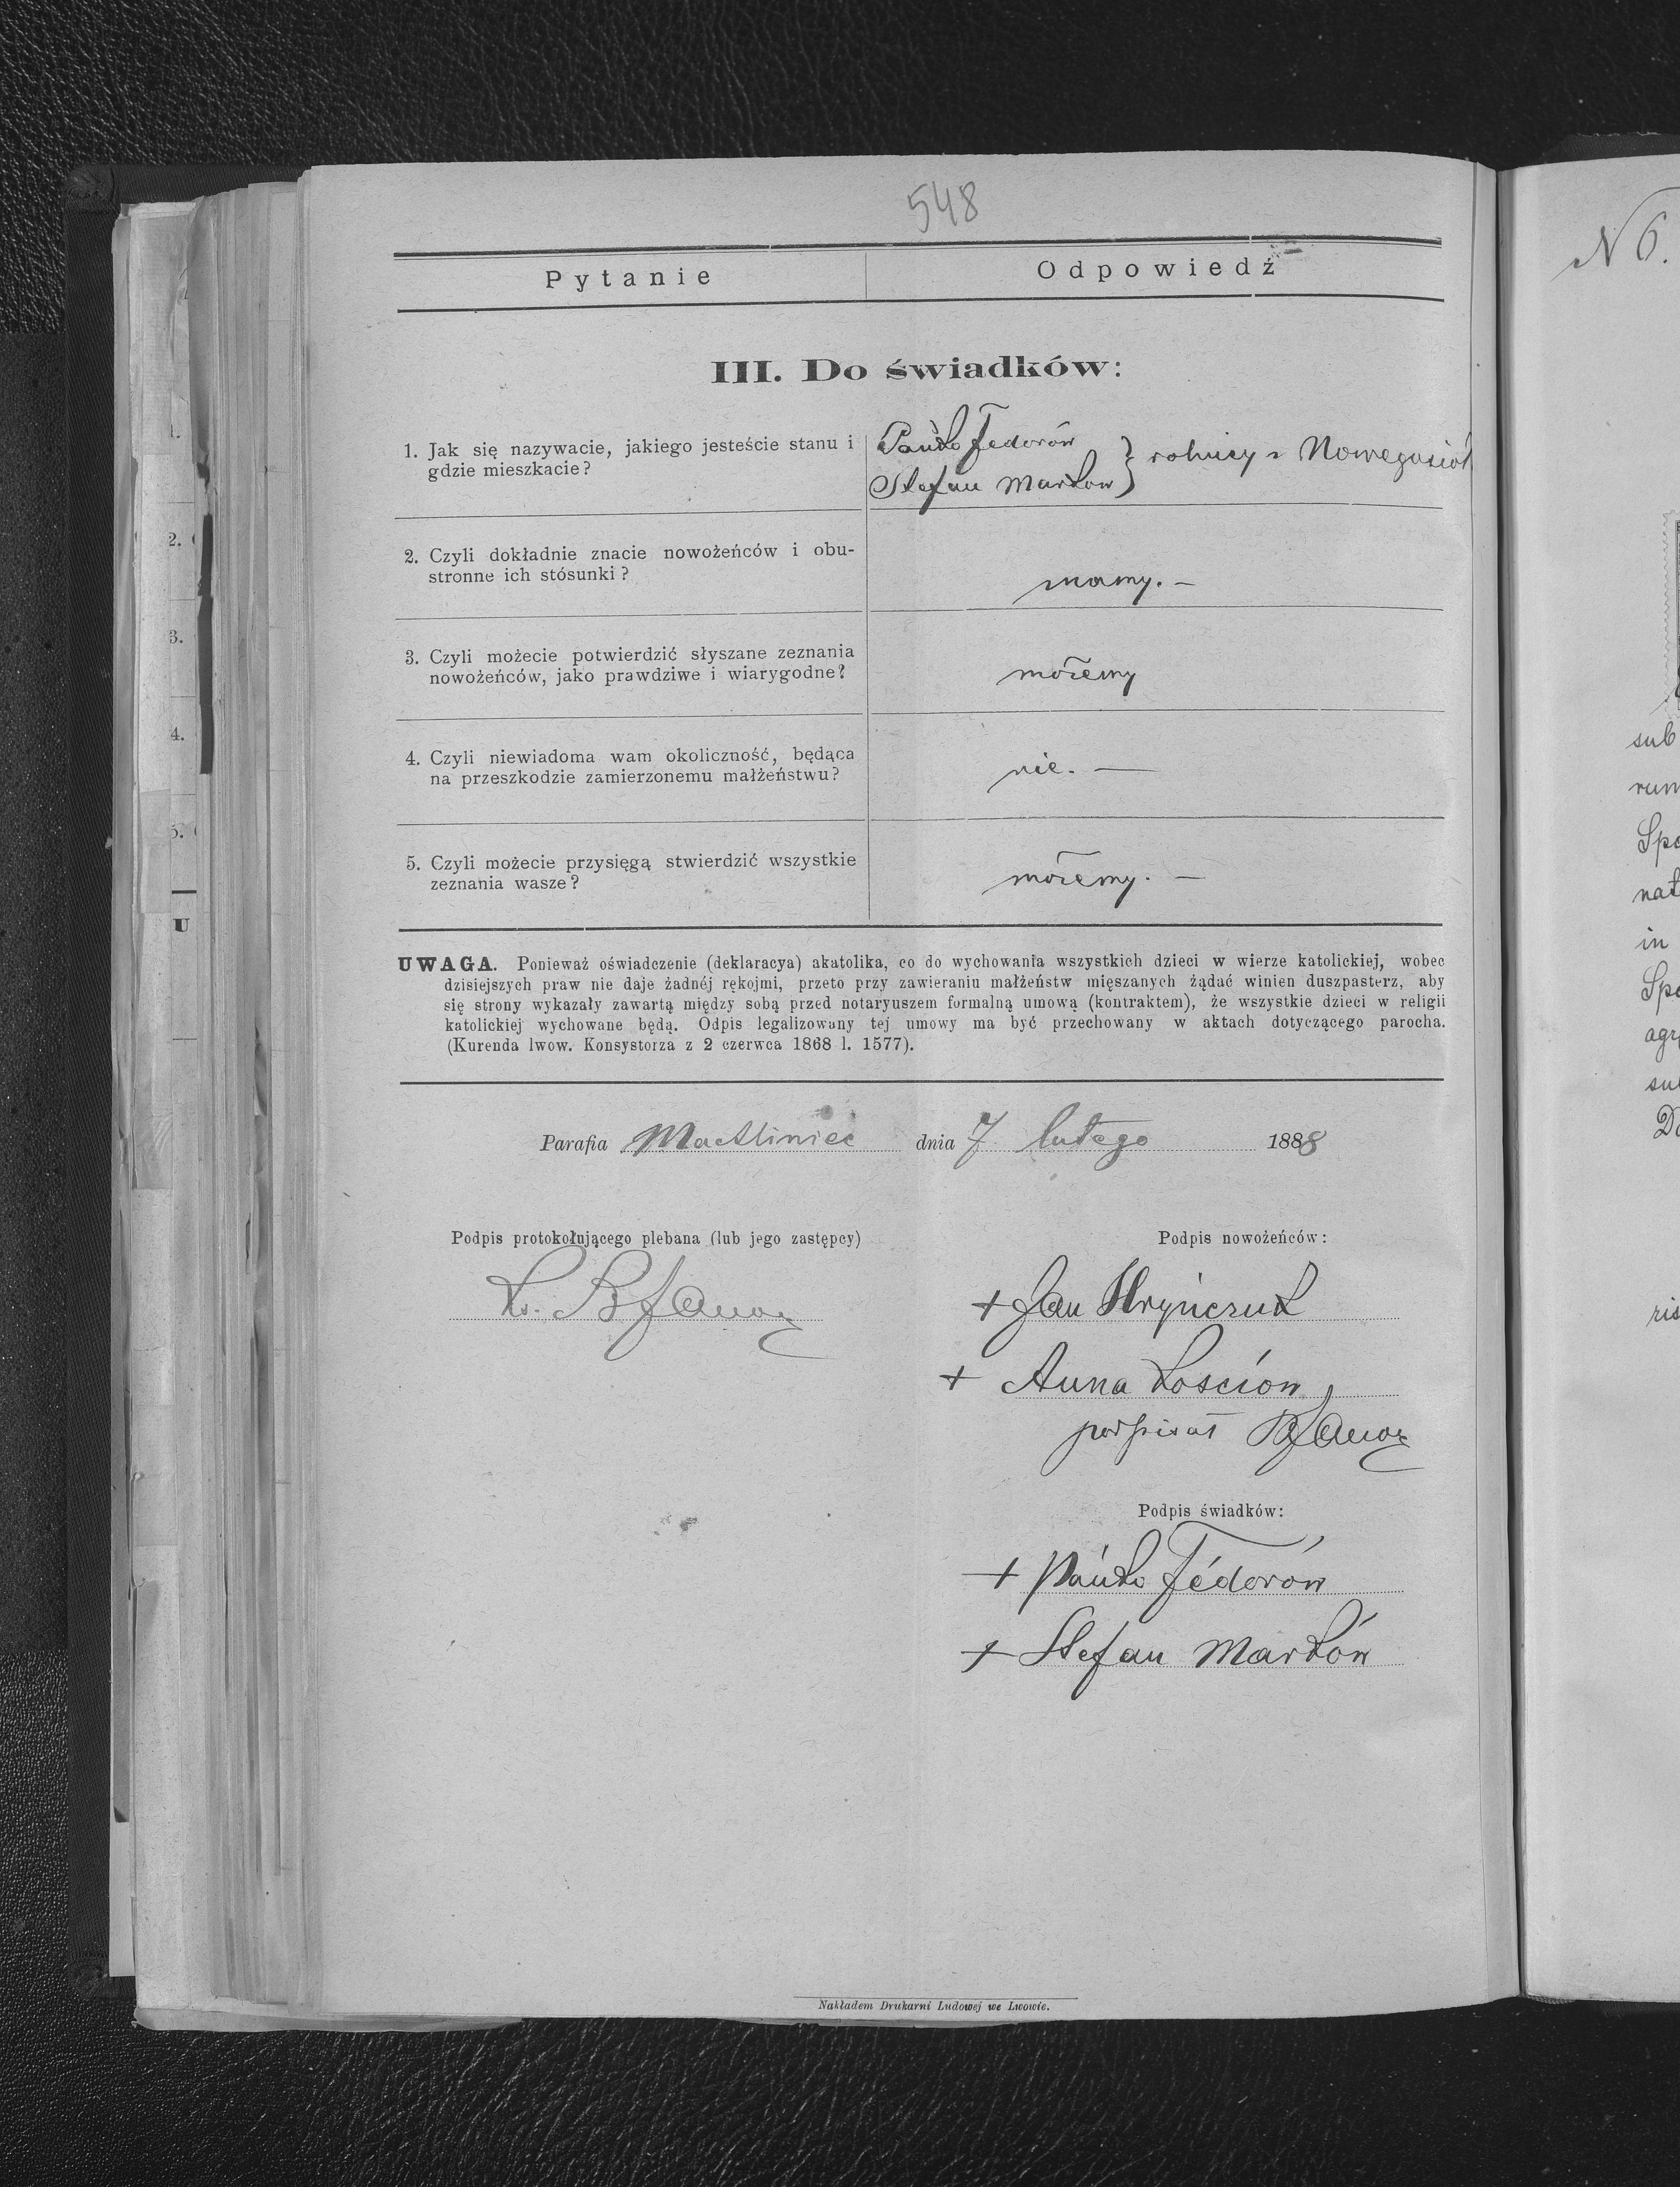 548
Pytanie
Odpowiedź
III. Do świadków:
1. Jak się nazywacie, jakiego jesteście stanu i
gdzie mieszkacie?
Pańko Fedorów
Stefan Markow } rolnicy z Nowegosiół
2. Czyli dokładnie znacie nowożeńców i obu-
stronne ich stósunki?
znamy. —
3. Czyli możecie potwierdzić słyszane zeznania
nowożeńców, jako prawdziwe i wiarygodne?
możemy
4. Czyli niewiadoma wam okoliczność, będąca
na przeszkodzie zamierzonemu małżeństwu?
nie. —
5. Czyli możecie przysięgą stwierdzić wszystkie
zeznania wasze?
możemy. —
UWAGA. Ponieważ oświadczenie (deklaracya) akatolika, co do wychowania wszystkich dzieci w wierze katolickiej, wobec
dzisiejszych praw nie daje żadnéj rękojmi, przeto przy zawieraniu małżeństw mięszanych żądać winien duszpasterz, aby
się strony wykazały zawartą między sobą przed notaryuszem formalną umową (kontraktem), że wszystkie dzieci w religii
katolickiej wychowane będą. Odpis legalizowany tej umowy ma być przechowany w aktach dotyczącego parocha.
(Kurenda lwow. Konsystorza z 2 czerwca 1868 l. 1577).
Parafia Machliniec dnia 7 lutego 1888
Podpis protokołującego plebana (lub jego zastępcy)
Podpis nowożeńców:
+ Jan Hryńczuk
+ Anna Kosciow
podpisał
Podpis świadków:
+ Pańko Fédorów
+ Stefan Marków
Nakładem Drukarni Ludowej we Lwowie.
N 6.
2.
3.
4.
5.
U
sub
in